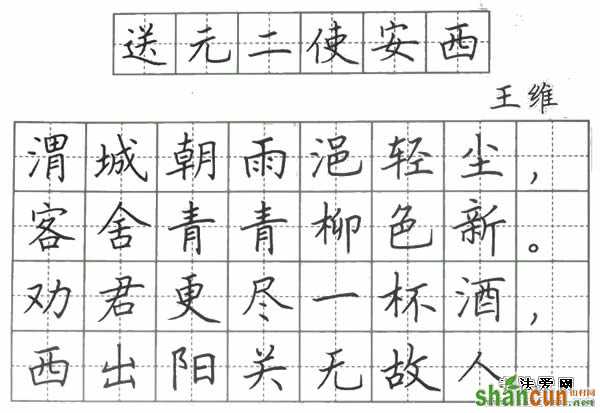 送元二使安西
王维
渭城朝雨浥轻尘，
客舍青青柳色新。
劝君更尽一杯酒，
西出阳关无故人
法爱网
shancun